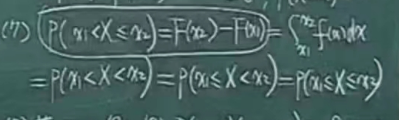 (7) P(x₁<X≤x₂)=F(x₂)-F(x₁)=∫_{x₁}^{x₂}f(x)dx
=P(x₁<X<x₂)=P(x₁≤X<x₂)=P(x₁≤X≤x₂)